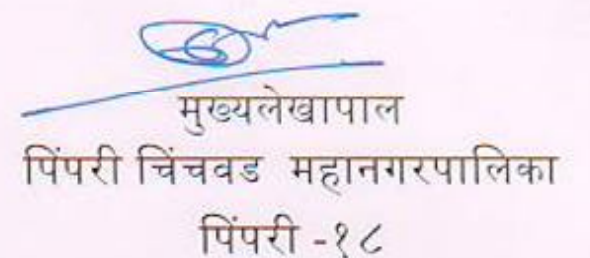 मुख्यलेखापाल
पिंपरी चिंचवड महानगरपालिका
पिंपरी -१८